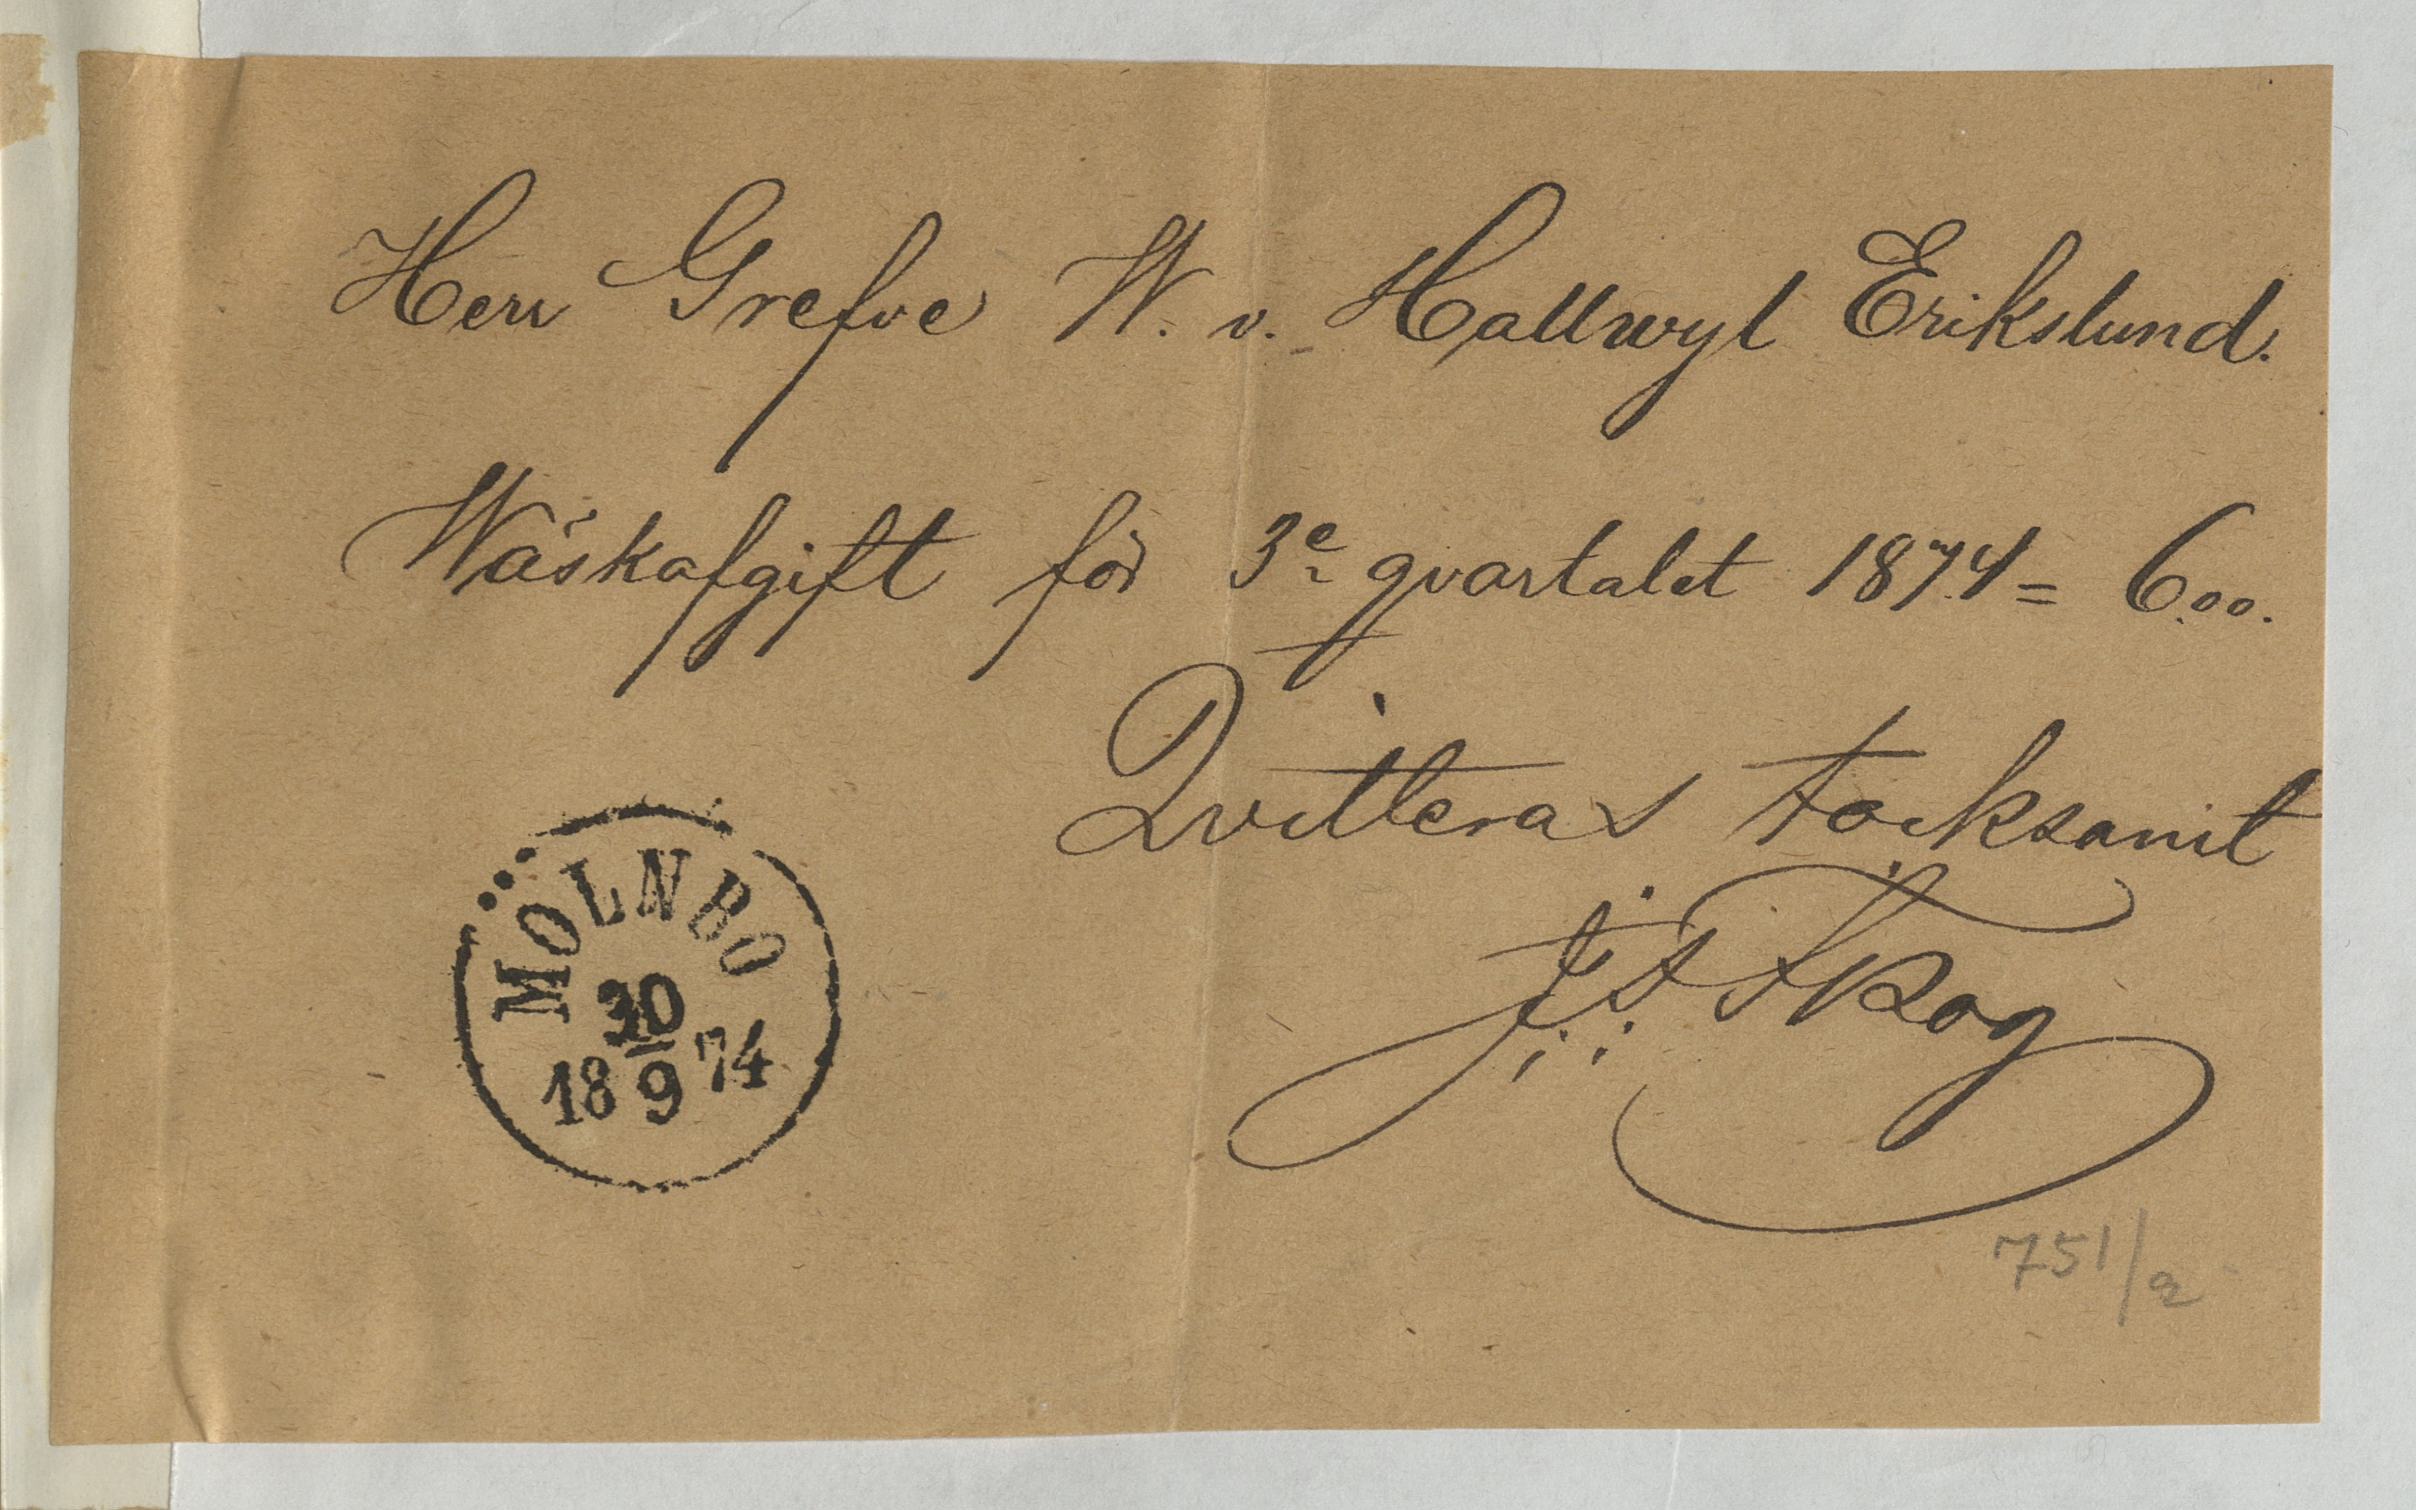 Herr Grefve W. v. Hallwyl Erikslund.
Wäskafgift för 3e qvartalet 1874 = 6.00.
Qvitteras tacksamt
J. A. Skog
MÖLNBO
30
18 9 74
751/a